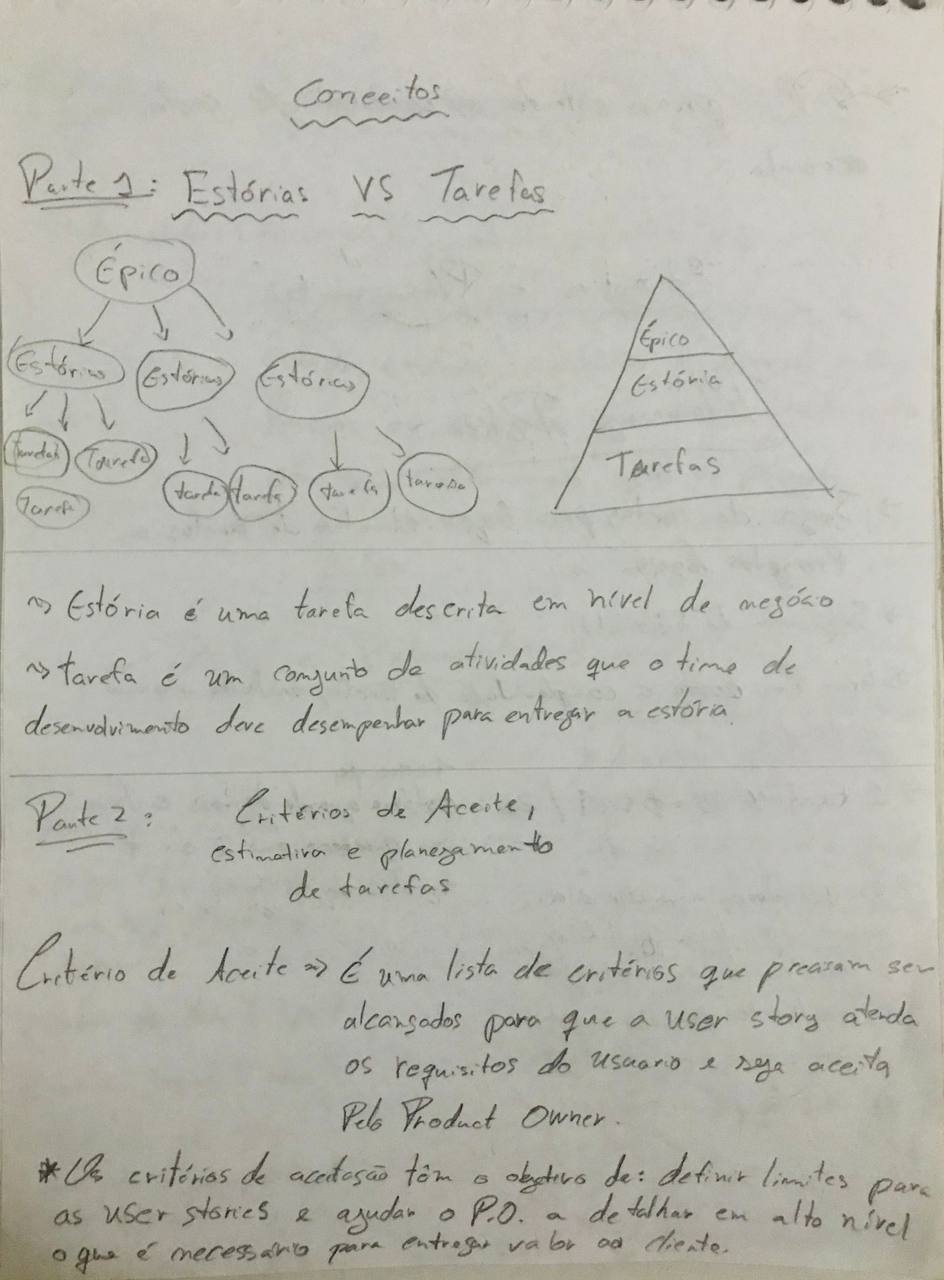 Conceitos
Parte 1: Estórias VS Tarefas
Épico
Estórias Estórias Estórias
Tarefa Tarefa tarefa tarefa tarefa tarefa
Tarefa
Épico
Estória
Tarefas
~> Estória é uma tarefa descrita em nível de negócio
~> tarefa é um conjunto de atividades que o time de
desenvolvimento deve desempenhar para entregar a estória.
Parte 2: Critérios de Aceite,
estimativa e planejamento
de tarefas
Critério de Aceite => É uma lista de critérios que precisam ser
alcançados para que a user story atenda
os requisitos do usuario e seja aceita
Pelo Product Owner.
*Os critérios de aceitação têm o objetivo de: definir limites para
as user stories e ajudar o P.O. a detalhar em alto nível
o que é necessário para entregar valor ao cliente.